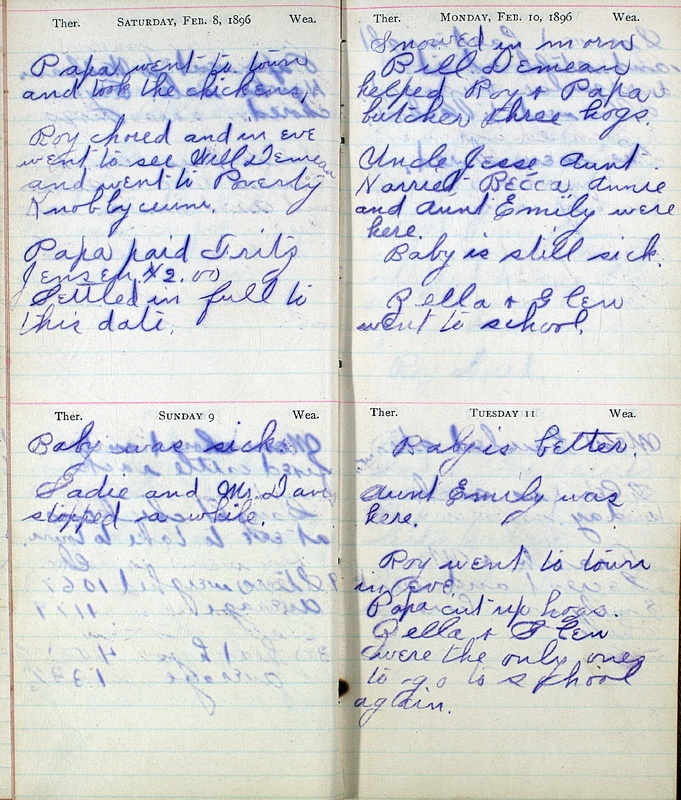 Ther. SATURDAY, FEB. 8, 1896 Wea.
Papa went to town
and took the chickens,
Roy chored and in eve
went to see Will Demean
and went to Poverty
Knobbyceum.
Papa paid Fritz
Jensen $2.00
Settled in full to
this date.
Ther. SUNDAY 9 Wea.
Baby was sick.
Sadie and Mr. Davis
stopped a while.
Ther. MONDAY, FEB. 10, 1896 Wea.
Snowed in morn
Bill Demean
helped Roy + Papa
butcher three hogs.
Uncle Jesse Aunt
Harriet Becca Annie
and Aunt Emily were
here.
Baby is still sick.
Bella + Glen
went to school.
Ther. TUESDAY 11 Wea.
Baby is better.
Aunt Emily was
here.
Roy went to town
in eve.
Papa cut up hogs.
Bella + Glen
were the only ones
to go to school
again.